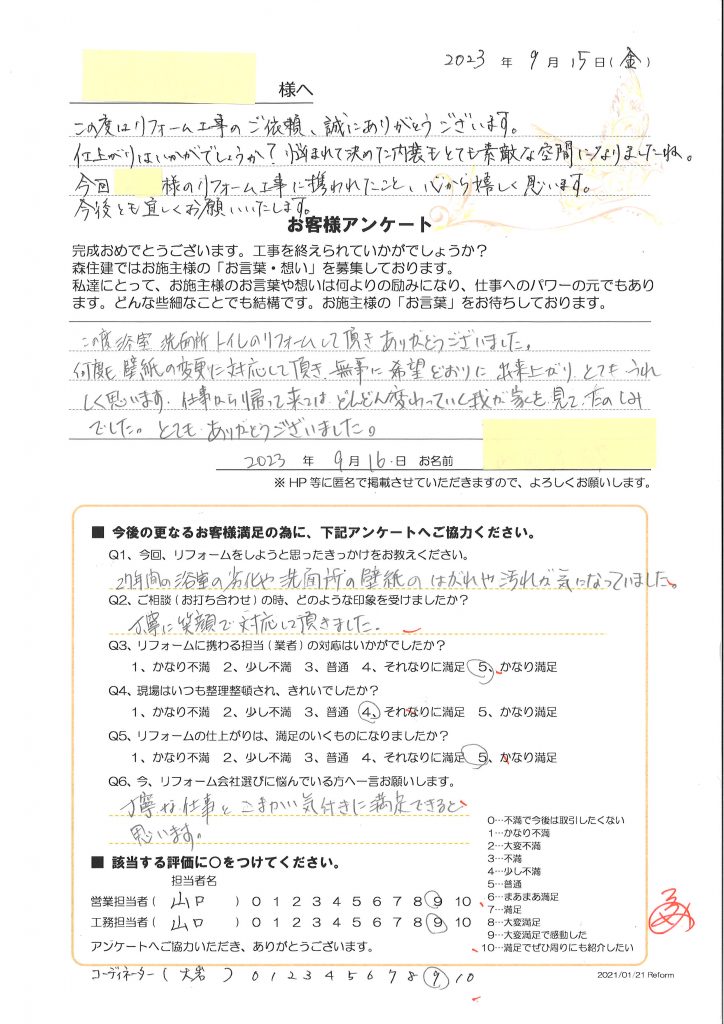 2023 年 9 月 15 日(金)
様へ
この度はリフォーム工事のご依頼、誠にありがとうございます。
仕上がりはいかがでしょうか?悩まれて決めた内装もとても素敵な空間になりましたね。
今回 様のリフォーム工事に携われたこと、心から嬉しく思います。
今後とも宜しくお願いいたします。
お客様アンケート
完成おめでとうございます。工事を終えられていかがでしょうか?
森住建ではお施主様の「お言葉・想い」を募集しております。
私達にとって、お施主様のお言葉や想いは何よりの励みになり、仕事へのパワーの元でもあり
ます。どんな些細なことでも結構です。お施主様の「お言葉」をお待ちしております。
この度浴室 洗面所 トイレのリフォームして頂き ありがとうございました。
何度も 壁紙の変更に対応して頂き、無事に希望どおりに 出来上がり とても うれ
しく思います。仕事から帰って来ては どんどん変わっていく我が家を見て、たのしみ
でした。とても ありがとうございました。
2023 年 9月 16 日 お名前
※ HP 等に匿名で掲載させていただきますので、よろしくお願いします。
■ 今後の更なるお客様満足の為に、下記アンケートへご協力ください。
Q1、今回、リフォームをしようと思ったきっかけをお教えください。
27年間の浴室の劣化や洗面所の壁紙の はがれや汚れが気になっていました。
Q2、ご相談(お打ち合わせ)の時、どのような印象を受けましたか?
丁寧に笑顔で対応して頂きました。
Q3、リフォームに携わる担当(業者)の対応はいかがでしたか?
1、かなり不満 2、少し不満 3、普通 4、それなりに満足 5、かなり満足
Q4、現場はいつも整理整頓され、きれいでしたか?
1、かなり不満 2、少し不満 3、普通 4、それなりに満足 5、かなり満足
Q5、リフォームの仕上がりは、満足のいくものになりましたか?
1、かなり不満 2、少し不満 3、普通 4、それなりに満足 5、かなり満足
Q6、今、リフォーム会社選びに悩んでいる方へ一言お願いします。
丁寧な仕事と こまかい気付きに満足できると
思います。
0…不満で今後は取引したくない
1…かなり不満
2…大変不満
3…不満
4…少し不満
5…普通
6…まあまあ満足
7…満足
8…大変満足
9…大変満足で感動した
10…満足でぜひ周りにも紹介したい
■ 該当する評価に○をつけてください。
担当者名
営業担当者( 山口 ) 0 1 2 3 4 5 6 7 8 9 10
工務担当者( 山口 ) 0 1 2 3 4 5 6 7 8 9 10
アンケートへご協力いただき、ありがとうございます。
コーディネーター( 大岩 ) 0 1 2 3 4 5 6 7 8 9 10
2021/01/21 Reform